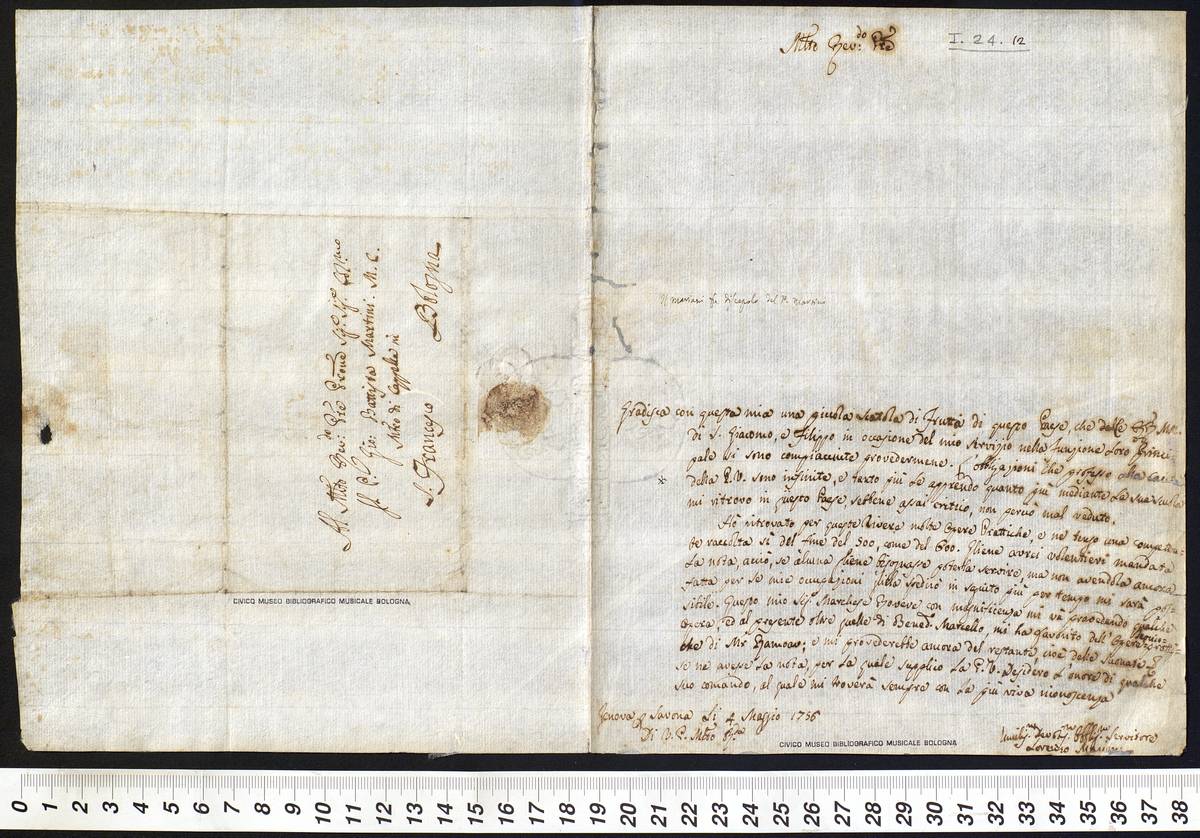 Al Mlto Rev.do Pre Prone Sig.r Sig.r Col.mo
Il P. Gio: Battista Martini. M. C.
Mro di Cappella in
S. Francesco Bologna
CIVICO MUSEO BIBLIOGRAFICO MUSICALE BOLOGNA
Mlto Rev:do Pre
I. 24. 12
Il Mariani fu discepolo del P. Martini
Gradisca con questa mia una picciola scatola di Frutta di questo Paese, che dalle
di S. Giacomo, e Filippo in ocasione del mio servizio nella funzione loro Princi-
pale si sono compiacciute provedermene. L'obligazioni che professo alla
della P. V. sono infinite, e tanto più le apprendo quanto più mediante la sua scuola
mi ritrovo in questo Paese, sebene assai critico, non perciò mal veduto.
Hò ritrovato per queste Rivere molte opere Prattiche, e ne tengo una competen-
te raccolta sì del fine del 500, come del 600. Gliene avrei volentieri mandata
la nota, acciò, se alcuna gliene bisognasse poterla servire, ma non avendola ancora
fatta per le mie occupazioni in seguito più per tempo mi sarà pos-
sibile. Questo mio Sig.r Marchese Rovere con magnificenza mi và provedendo qualche
opera, ed al presente oltre quelle di Bened.o Marcello, mi ha favorito dell'opere
che di Mr Rameau; e mi provederebbe ancora del restante, cioè delle Suonate
se ne avesse la nota, per la quale supplico la P. V. Desidero l'onore di qualche
suo comando, al quale mi troverà sempre con la più viva riconoscenza
Genova p Savona li 4 Maggio 1756
Di V. P. Mlto
Servitore
Lorenzo Mariani
CIVICO MUSEO BIBLIOGRAFICO MUSICALE BOLOGNA
0 1 2 3 4 5 6 7 8 9 10 11 12 13 14 15 16 17 18 19 20 21 22 23 24 25 26 27 28 29 30 31 32 33 34 35 36 37 38